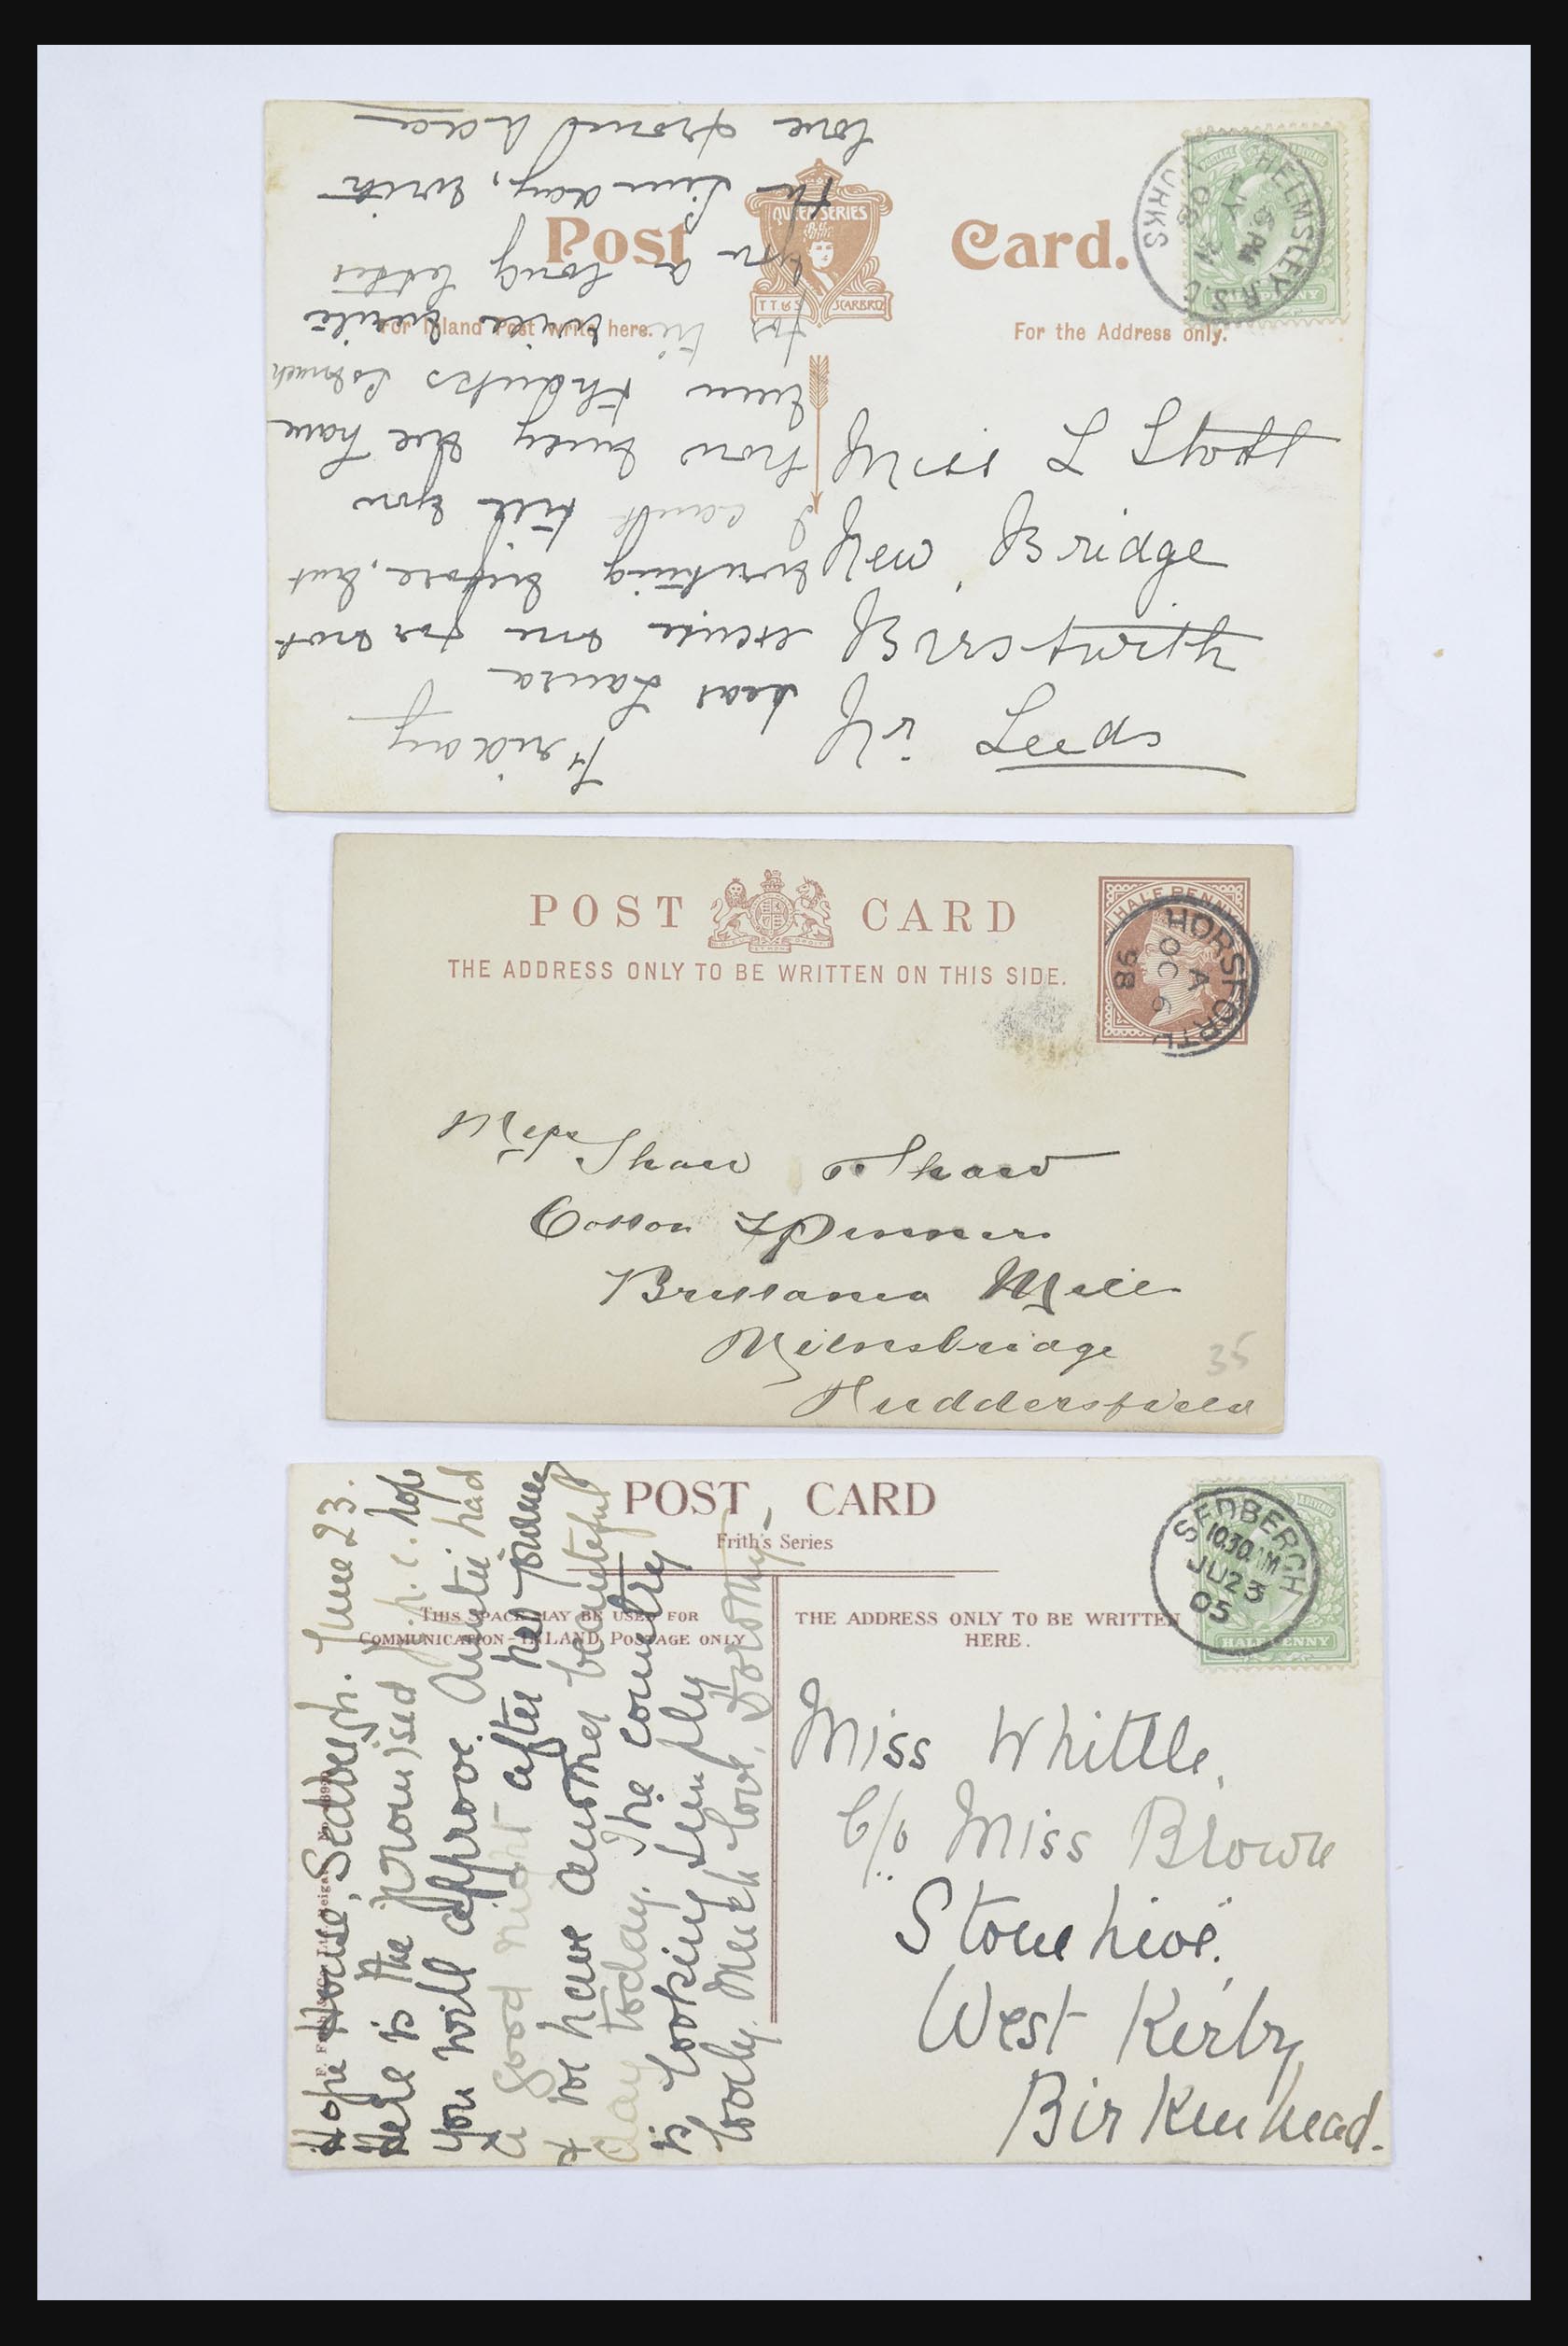 Post Card.
QUEEN SERIES
T.T.&S. SCARBRO
For Inland Post write here.
For the Address only.
HELMSLEY R.S.O.
5 PM
JY 31
08
YORKS
Miss L Stott
New Bridge
Birstwith
Nr Leeds
Friday
Dear Laura
excuse me for not
writing before, but
I can't tell you
how busy we have
been thanks so much
for
you a long letter
on Sunday, with
love from
POST CARD
THE ADDRESS ONLY TO BE WRITTEN ON THIS SIDE.
HALF PENNY
HORSFORTH
A
OC 6
98
Messrs Shaw & Shaw
Cotton Spinners
Britannia Mill
Milnsbridge
Huddersfield
35
POST CARD
Frith's Series
THIS SPACE MAY BE USED FOR
COMMUNICATION - INLAND POSTAGE ONLY
THE ADDRESS ONLY TO BE WRITTEN
HERE.
SEDBERGH
10.30 AM
JU 23
05
HALFPENNY
Miss Whittle,
C/o Miss Brown
Stonehive.
West Kirby
Birkenhead.
Hope House, Sedbergh. June 23.
Here is the promised p.c. hope
you will approve. Auntie had
a good night after her journey
& we have another beautiful
day today. The country
is looking simply
lovely. Much love, Dorothy